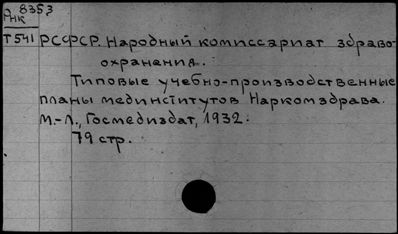 А 8353
РНК
Т541 РСФСР. Народный комиссариат здраво-
охранения.
Типовые учебно-производственные
планы мединститутов Наркомздрава.
М.-Л., Госмедиздат, 1932.
79 стр.